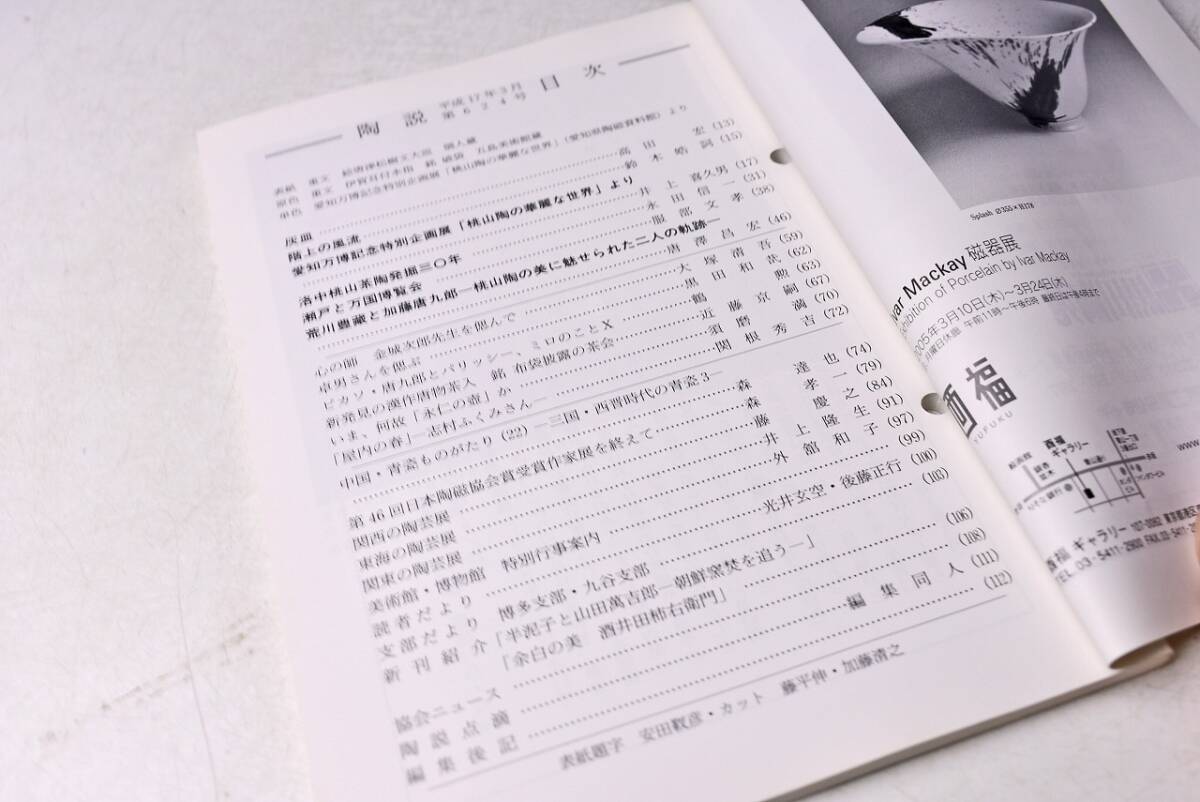 陶説 平成17年3月 第624号 目次
表紙 重文 絵唐津松樹文大皿 個人蔵
原色 重文 伊賀耳付水指 銘 破袋 五島美術館蔵
単色 愛知万博記念特別企画展「桃山陶の華麗な世界」(愛知県陶磁資料館)より
灰皿 高田 宏 (13)
階上の風流 鈴木 (15)
愛知万博記念特別企画展「桃山陶の華麗な世界」より
井上喜久男 (17)
洛中桃山茶陶発掘三〇年 永田信一 (31)
瀬戸と万国博覧会 服部文孝 (38)
荒川豊蔵と加藤唐九郎―桃山陶の美に魅せられた二人の軌跡―
唐澤昌宏 (46)
心の師 金城次郎先生を偲んで 大塚清吾 (59)
卓男さんを偲ぶ 黒田和 (62)
ピカソ・唐九郎とパリッシー、ミロのことX 鶴 勲 (63)
新発見の漢作唐物茶入 銘 布袋披露の茶会 近藤京嗣 (67)
いま、何故「永仁の壺」か 須磨 満 (70)
「屋内の春」―志村ふくみさん― 関根秀吉 (72)
中国・青瓷ものがたり (22) ―三国・西晋時代の青瓷3―
森 達也 (74)
第46回日本陶磁協会賞受賞作家展を終えて 森 孝一 (79)
関西の陶芸展 藤 慶之 (84)
東海の陶芸展 井上隆生 (91)
関東の陶芸展 外舘和子 (97)
美術館・博物館 特別行事案内 (99)
読者だより 光井玄空・後藤正行 (100)
支部だより 博多支部・九谷支部 (103)
新刊紹介 「半泥子と山田萬吉郎―朝鮮窯焚を追う―」
「余白の美 酒井田柿右衛門」 (106)
協会ニュース (108)
陶説点滴 編集同人 (111)
編集後記 (112)
表紙題字 安田靫彦・カット 藤平伸・加藤清之
Splash
Ivar Mackay 磁器展
Exhibition of Porcelain by Ivar Mackay
2005年3月10日(木)～3月24日(木)
月曜日休廊 午前11時～午後6時 最終日は午後4時まで
酉福
YUFUKU
酉福
ギャラリー
酉福 ギャラリー